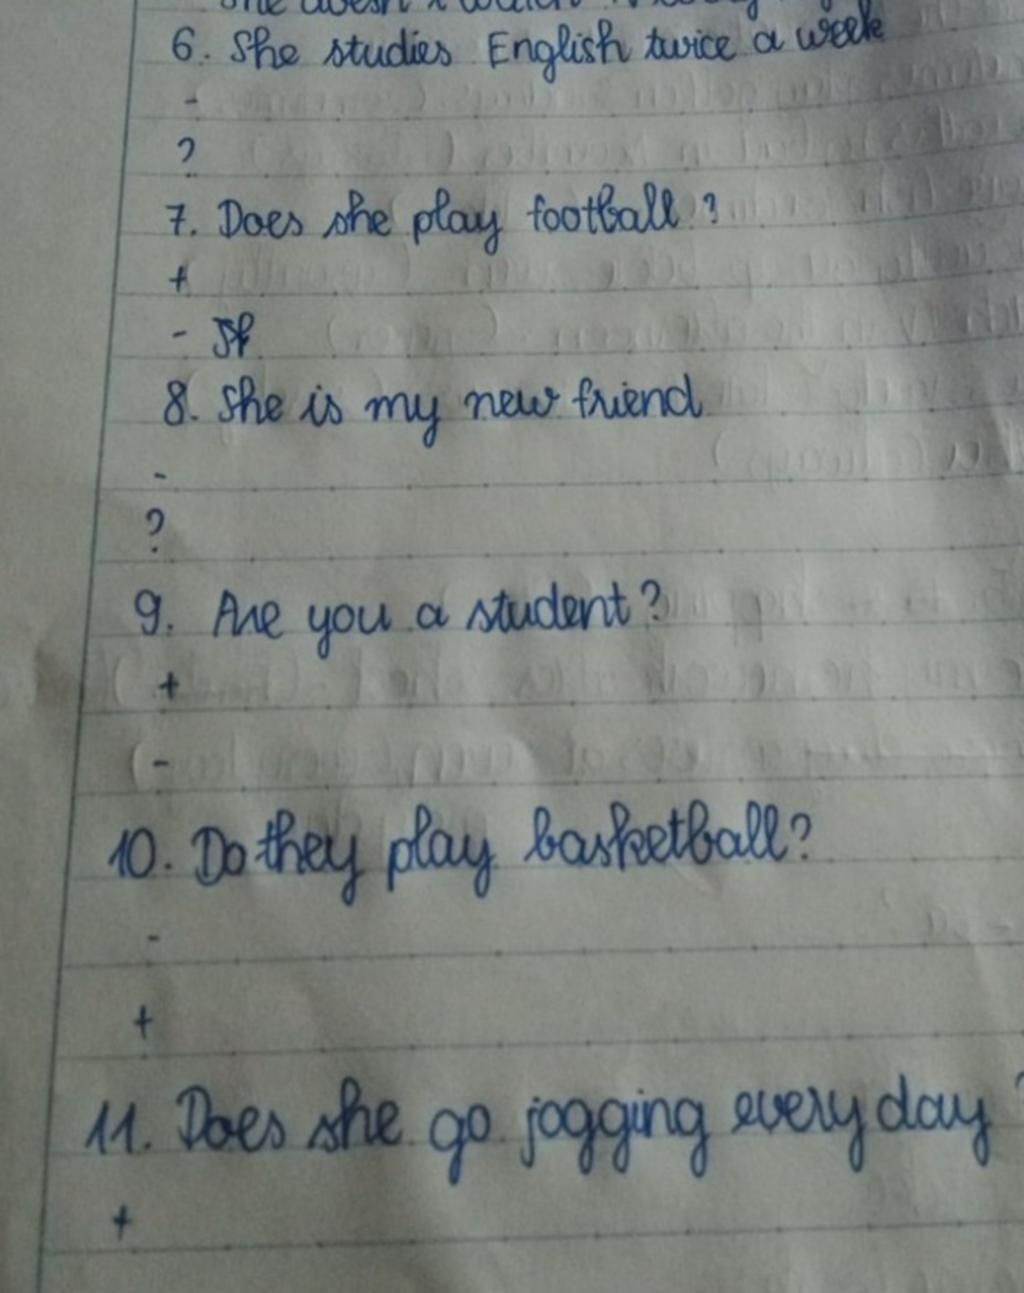 6. She studies English twice a week
-
?
7. Does she play football?
+
-
8. She is my new friend
-
?
9. Are you a student?
+
-
10. Do they play basketball?
-
+
11. Does she go jogging every day
+